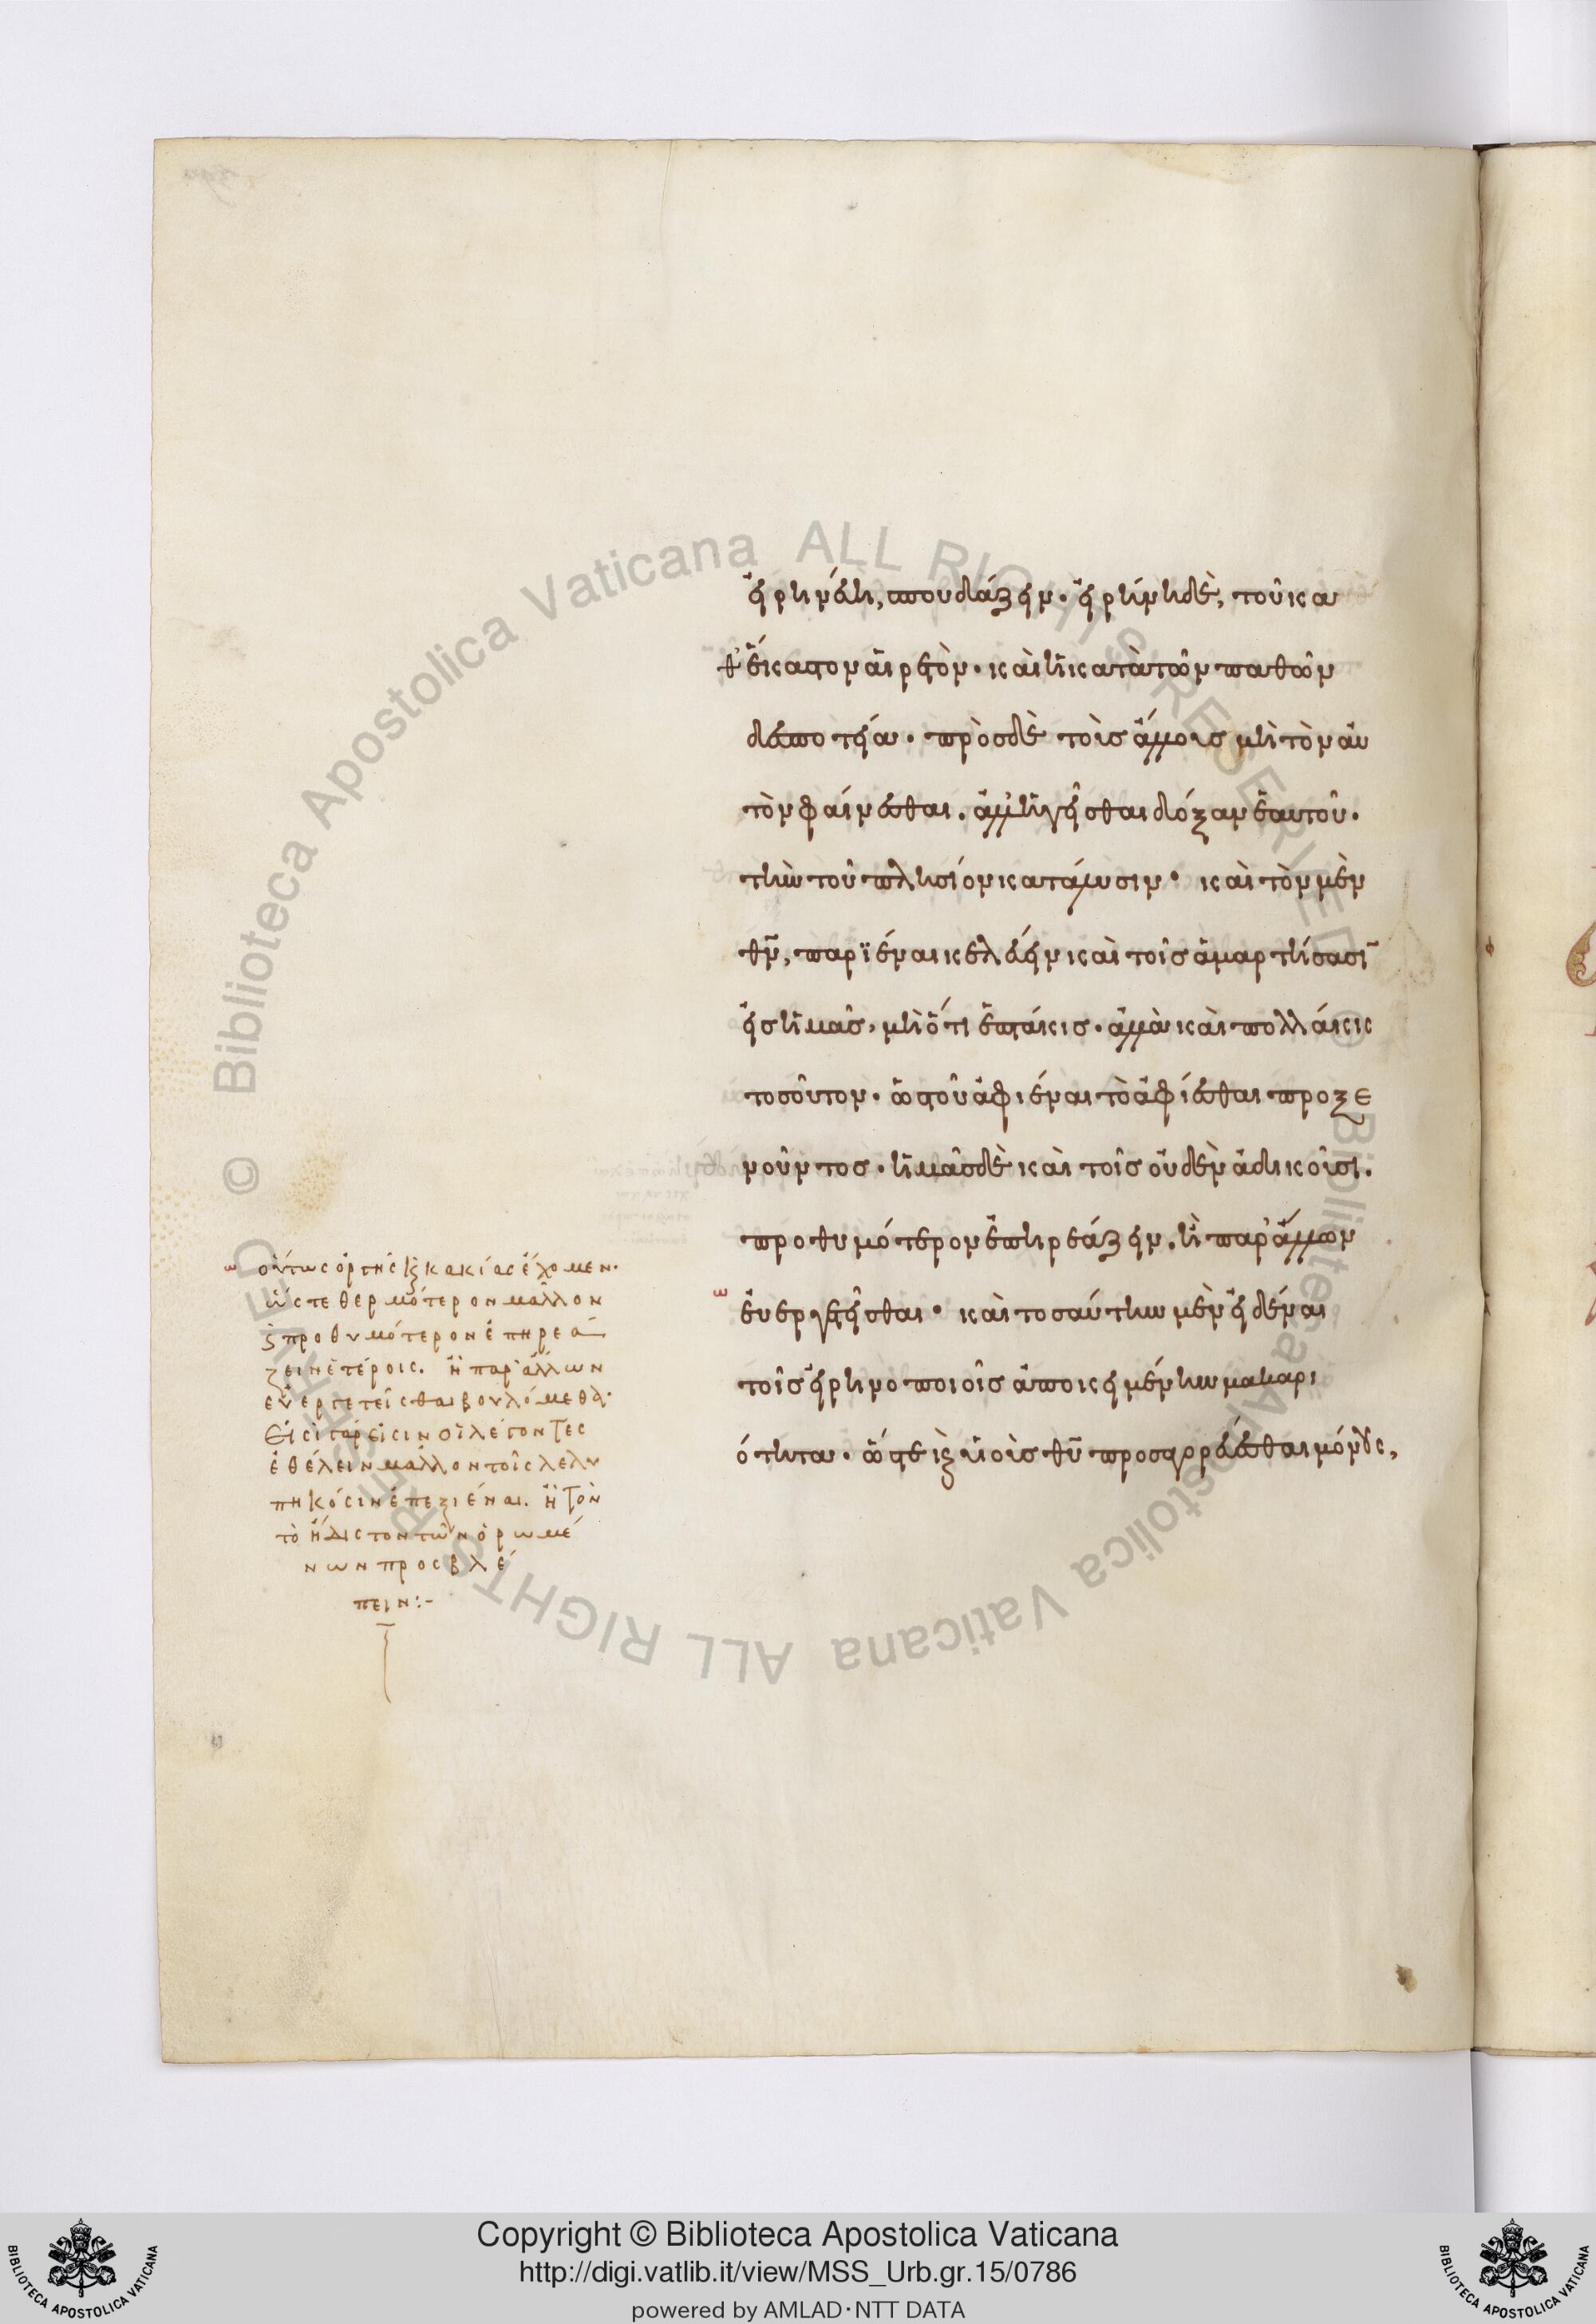 εἰρηνεύειν, σπουδάζειν· εἰρήνη δὲ, τοῦ κα
θ' ἕκαστον αἱρετὸν· καὶ ἡ κατὰ τῶν παθῶν
δεσποτεία· πρὸς δὲ τοῖς ἄλλοις μὴ τὸν αὐ
τὸν φαίνεσθαι. ἀλλ' ἡγεῖσθαι δόξαν ἑαυτοῦ.
τὴν τοῦ πλησίον κατάλυσιν· καὶ τὸν μὲν
θν̄, παριέναι κελεύειν καὶ τοῖς ἁμαρτήσασῑ
εἰς ἡμᾶς, μὴ ὅτι ἑπτάκις. ἀλλὰ καὶ πολλάκις
τοσοῦτον. ὡς τοῦ ἀφιέναι τὸ ἀφίεσθαι προξε
νοῦντος. ἡμᾶς δὲ καὶ τοῖς οὐδὲν ἀδικοῦσι.
προθυμότερον ἐπηρεάζειν. ἢ παρ' ἄλλων
εὐεργετεῖσθαι· καὶ τοσαύτην μὲν εἰδέναι
τοῖς εἰρηνοποιοῖς ἀποκειμένην μακαρι
ότητα. ὥστε κ̀ υἱοὺς θῡ προσαγορεύεσθαι μόνους,
οὕτως ὀργῆς κ̀ κακίας ἔχομεν·
ὥστε θερμότερον μᾶλλον
κ̀ προθυμότερον ἐπηρεά
ζειν ἑτέροις. ἢ παρ' ἄλλων
εὐεργετεῖσθαι βουλόμεθα·
Εἰσὶ γάρ εἰσιν οἳ λέγοντες
ἐθέλειν μᾶλλον τοῖς λελυ
πηκόσιν ἐπεξιέναι. ἢ τὸν
τὸ ἥδιστον τῶν ὁρωμέ
νων προσβλέ
πειν:-
Copyright © Biblioteca Apostolica Vaticana
http://digi.vatlib.it/view/MSS_Urb.gr.15/0786
powered by AMLAD·NTT DATA
BIBLIOTECA APOSTOLICA VATICANA
BIBLIOTECA APOSTOLICA VATICANA
© Biblioteca Apostolica Vaticana ALL RIGHTS RESERVED
© Biblioteca Apostolica Vaticana ALL RIGHTS RESERVED